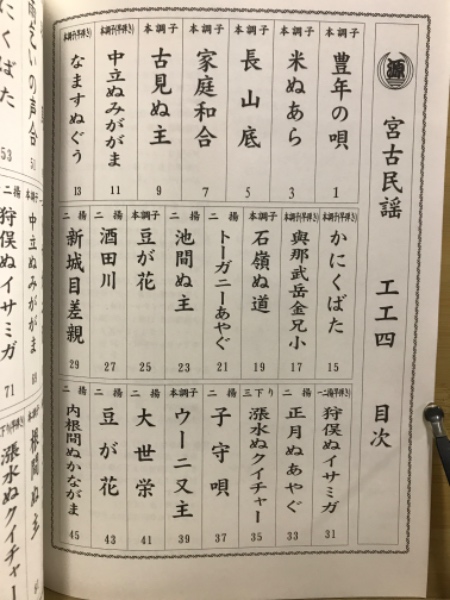 源
宮古民謡 工工四 目次
本調子
豊年の唄
1
本調子
米ぬあら
3
本調子
長山底
5
本調子
家庭和合
7
本調子
古見ぬ主
9
本調子(早弾き)
中立ぬみががま
11
本調子(早弾き)
なますぬぐう
13
本調子(早弾き)
かにくばた
15
本調子(早弾き)
與那武岳金兄小
17
本調子
石嶺ぬ道
19
二揚
トーガニーあやぐ
21
二揚
池間ぬ主
23
本調子
豆が花
25
二揚
酒田川
27
二揚
新城目差親
29
一二揚(早弾き)
狩俣ぬイサミガ
31
二揚
正月ぬあやぐ
33
三下り
漲水ぬクイチャー
35
二揚
子守唄
37
本調子
ウーニ又主
39
二揚
大世栄
41
二揚
豆が花
43
二揚
内根間ぬかながま
45
の声合
51
にくばた
53
本調子
中立ぬみががま
69
二揚
狩俣ぬイサミガ
71
本調子
根間ぬ主
漲水ぬクイチャー